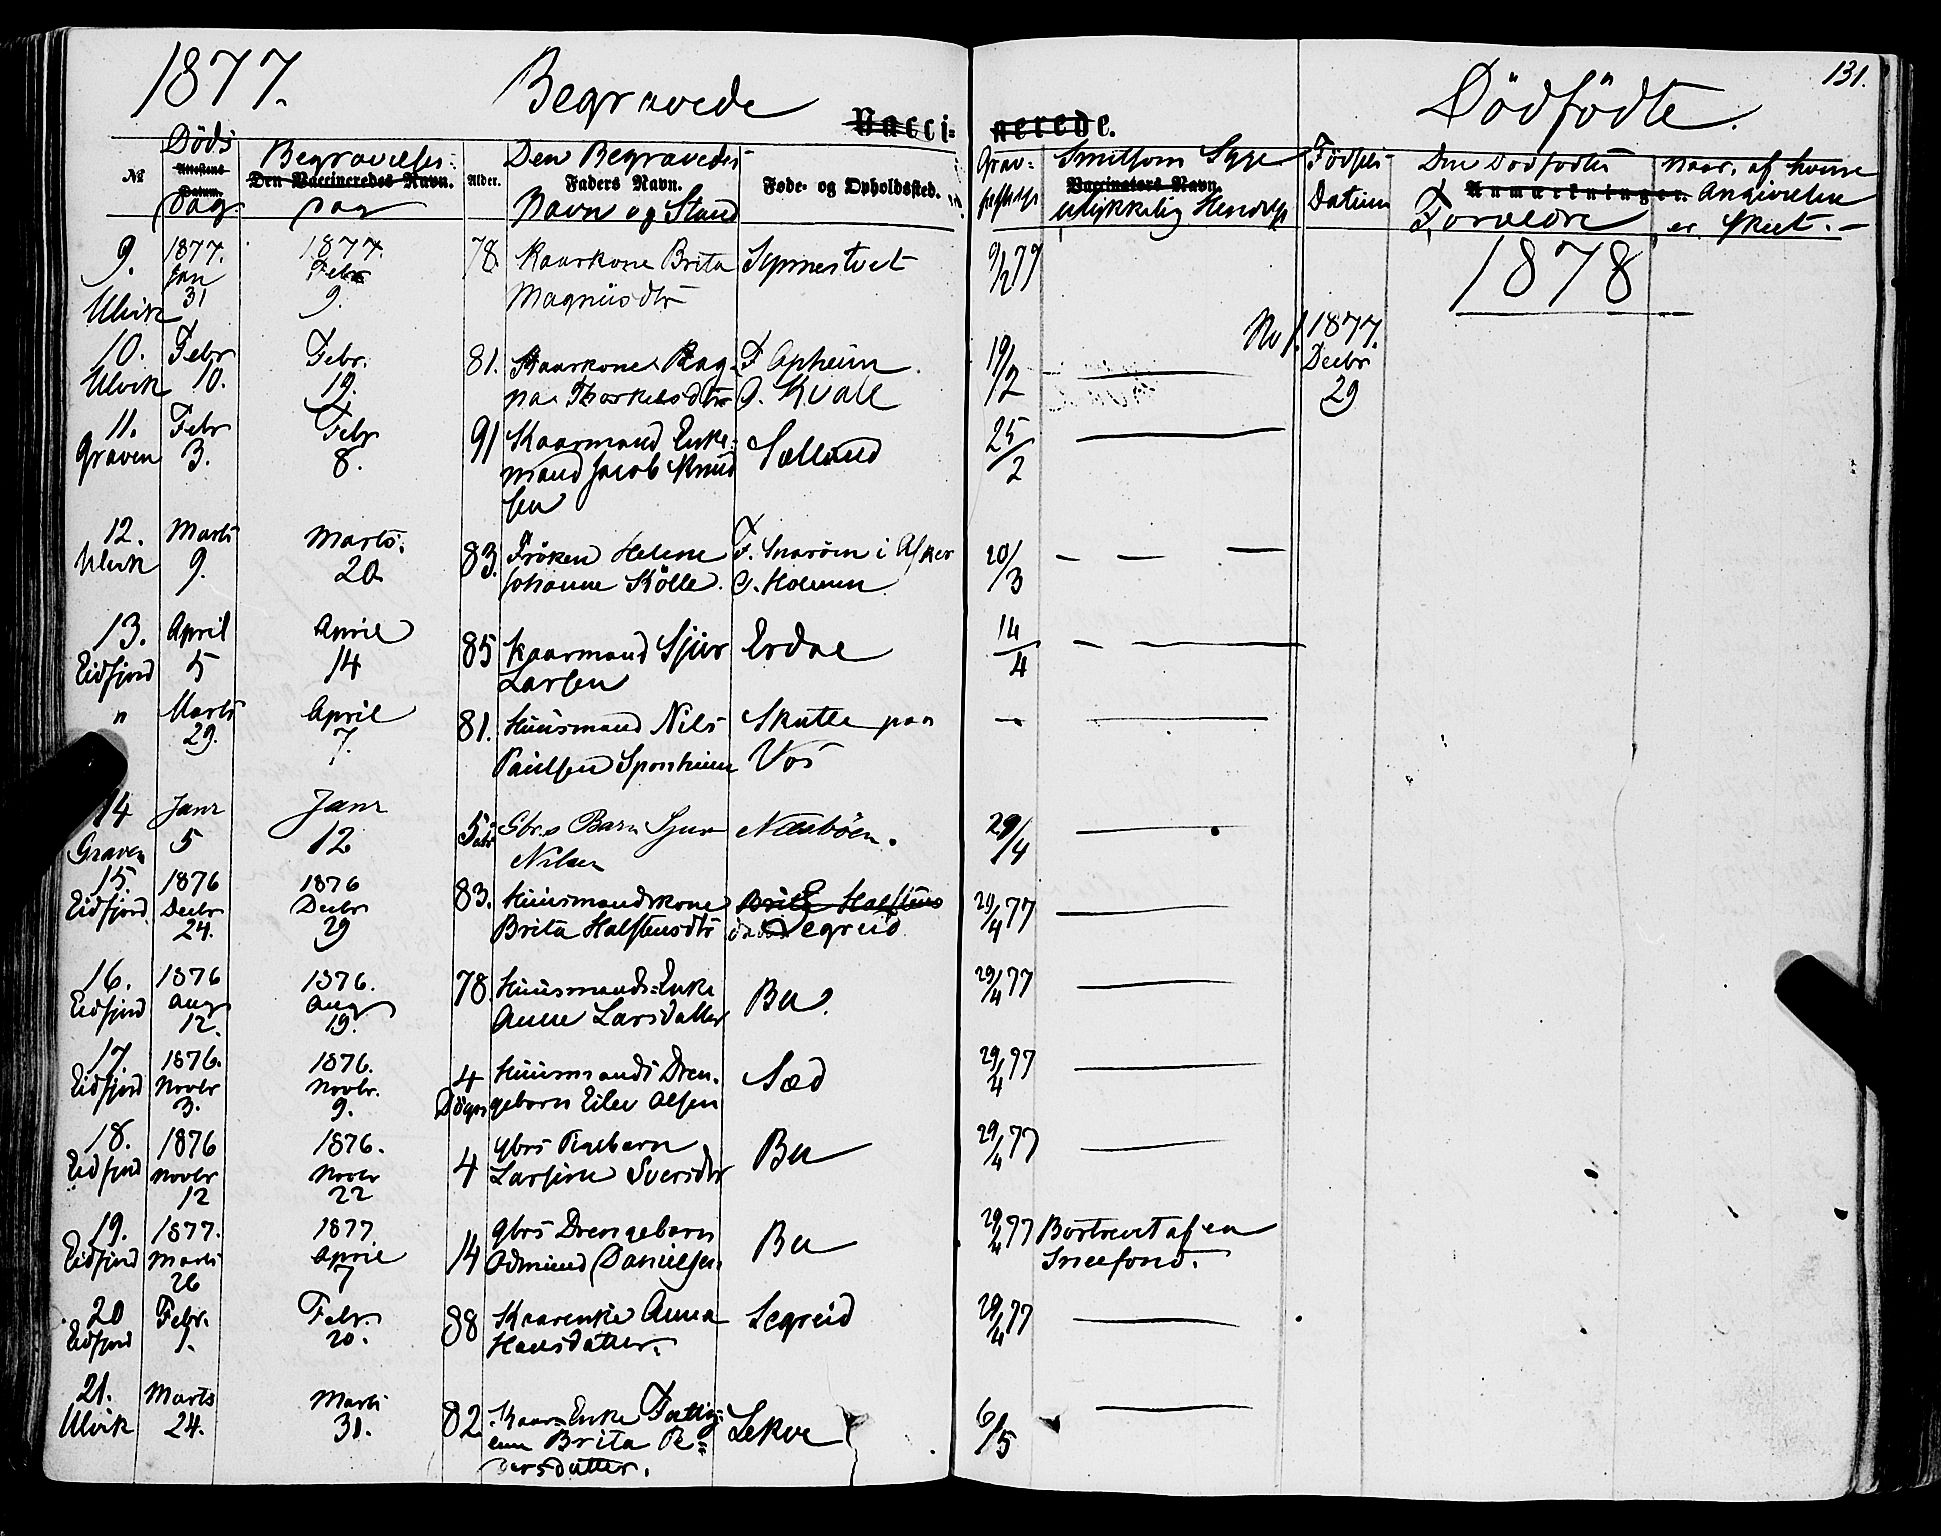 1877. Begravede Dödfödte. 131.
Vacci- nerede.
№ Döds Attestens Datum. dag
Begravelses- Den Vaccineredes Navn. dag
Alder.
Den Begravedes Faders Navn. Navn og Stand
Føde- og Opholdssted.
Grav-
Smitsom Syge Vaccinators Navn. ulykkelig Hendelse
Födsels Datum
Den Dödfödtes Anmærkninger. Forældre
Naar, af hvem Angivelsen er skeet.-
9. 1877. 1877. 78. Kaarkone Brita Symnestvet 9/2 77 1878
Jan Febr Magnusdtr
Ulvik 31 9.
No 1. 1877.
10. Febr Febr. 81. Kaarkone Rag- F Opheim. 19/2 Decbr
Ulvik 10. 19. na Thorkelsdtr O. Kvale 29
11. Febr Febr 91 Kaarmand Enke- Sælland 25/2
Graven 3. 8. mand Jacob Knud
sen
12. Marts Marts. 83. Fröken Helene F. Snaröen i Asker 20/3
Ulvik 9. 20 Johanne Kölle. O. Holmen
13. April April 85 Kaarmand Sjur Erdal 14/4
Eidfjord 5 14 Larsen
" Marts April 81. Huusmand Nils Skutle paa
29. 7. Paulsen Sponheim Vos
14 Janr Janr 5 Gbr.s Barn Sjur Næsböen. 29/4
Graven 5 12 Nilsen
15. 1876 1876 83. Huusmandskone Brita Halstens 29/4 77
Eidfjord Decbr Decbr Brita Halstensdtr Segreid
24. 29
16. 1876 1876. 78. Huusmands-Enke Bu. 29/4 77
Eidfjord Aug Aug Anne Larsdatter
12. 19.
17. 1876. 1876. 4 Huusmands Dren- Sæd 29/4 77
Eidfjord Novbr Novbr. Dögn gebarn Eilev Olsen
3. 9.
18. 1876 1876. 4 Gbrs Pigebarn Bu 29/4 77
Eidfjord Novbr Novbr Larsine Sversdtr
12 22
19. 1877. 1877. 14 Gbrs Drengebarn Bu 29/4 77 Bortrevet af en
Eidfjord Marts April Odmund Danielsen Sneefond.
26 7
20 Febr. Febr. 88 Kaarenke Anna Segreid 29/4 77
Eidfjord 9. 20. Hansdatter.
21. Marts Marts 82 Kaar-Enke Fattig- Lekve 6/5
Ulvik 24. 31. em Brita Pe-
dersdatter.